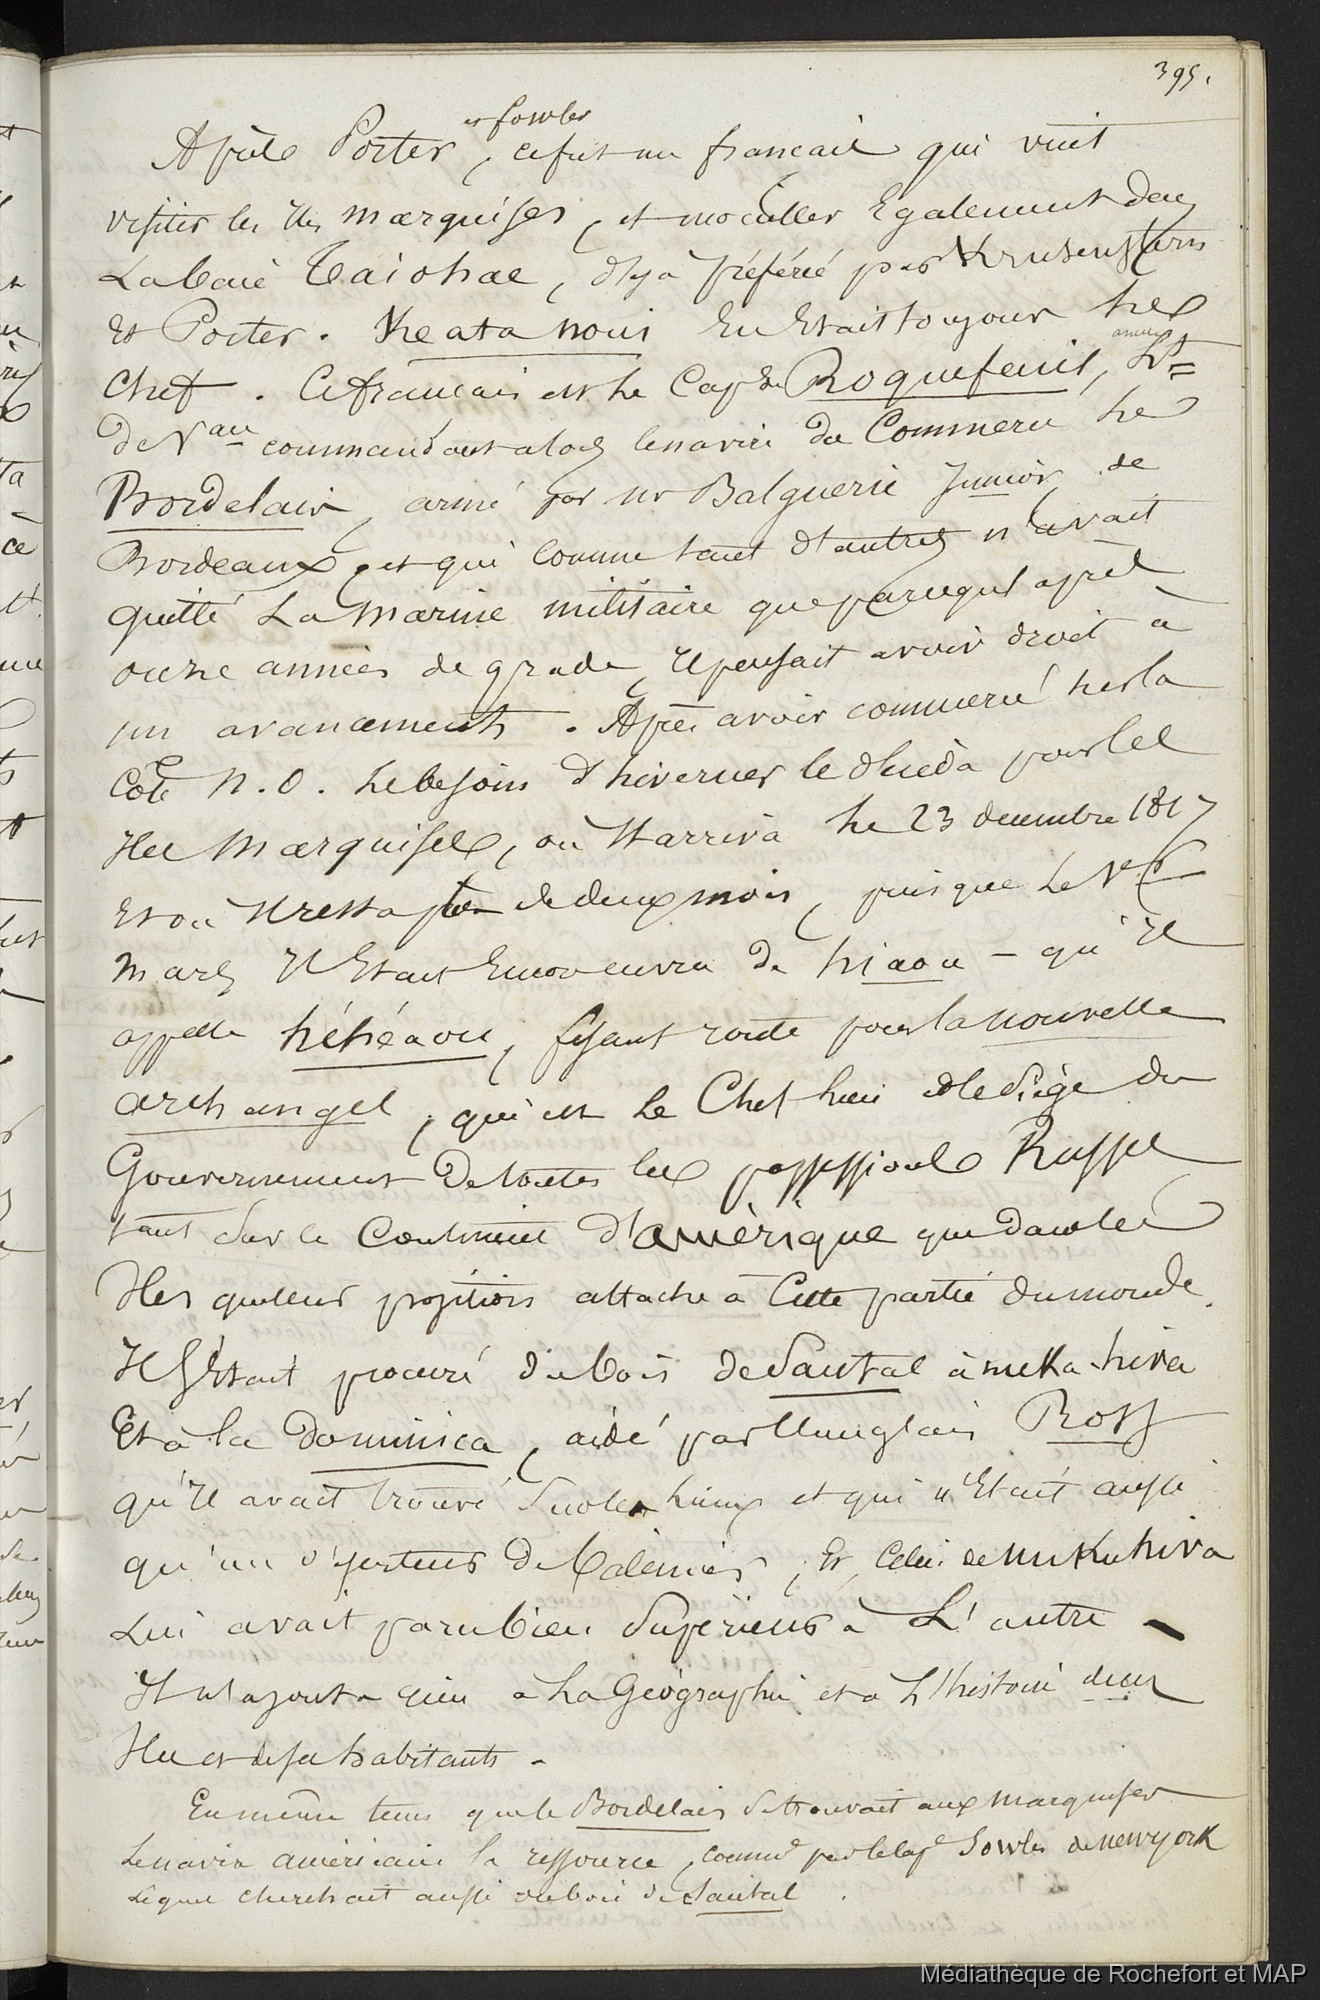 395.
et fowler
Après Porter, ce fut un français qui vint
visiter les Iles marquises, et mouiller Egalement dans
La baie Taiohae, déja préféré par Krusenstern
Et Porter. Keata noui En Etait toujours le
Chef. Ce français est le Capne Roquefeuil, ancien Lt=
de Vau commandant alors le navire du Commerce le
Bordelais, armé par mr Balguerie Junior, de
Bordeaux, et qui comme tant d'autres n'avait
quitté La Marine militaire que parcequ'après
onze années de grade, Il pensait avoir droit à
un avancement. Après avoir commercé sur la
Côte N.O. le besoin d'hiverner le décida pour les
Iles Marquises, où Il arriva le 23 decembre 1817
Et où Il resta plus de deux mois, puisque le 1er
Mars Il Etait En vue de hiaou - qu'il
appelle héhéaou, fesant route pour la nouvelle
archangel, qui est le Chef lieu et le siège du
Gouvernement De toutes les possessions Russes
tant sur le Continent d'amérique que dans les
Iles que leur position attache à Cette partie du monde.
Il s'Etait procuré du bois de Santal à nuka-hiva
Et à la Dominica, aidé par l'anglais Ross
qu'il avait trouvé sur les lieux et qui n'Etait aussi
qu'un déserteur De baleinier, Et Celui de nukuhiva
Lui avait paru bien Supérieur à L'autre -
Il n'ajouta rien à La Géographie et à L'histoire de ces
Iles et de ses habitants -
En même tems que le Bordelais se trouvait aux marquises
Le navire américain la ressource, command par le Cape fowler de newyork
Lequel cherchait aussi du bois de Santal.
Médiathèque de Rochefort et MAP